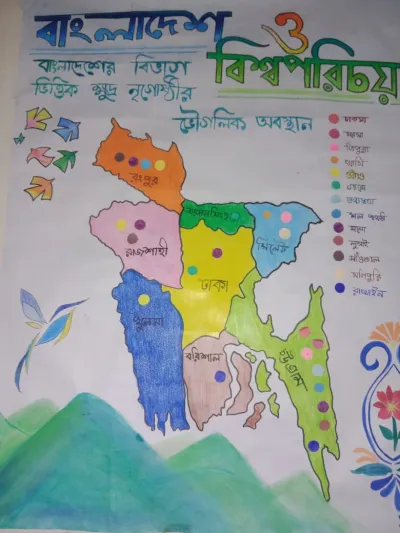 বাংলাদেশ ও
বিশ্বপরিচয়
বাংলাদেশের বিভাগ
ভিত্তিক ক্ষুদ্র নৃগোষ্ঠীর
ভৌগলিক অবস্থান
চাকমা
মারমা
ত্রিপুরা
খাসি
গারো
সাঁওতাল
মনিপুরি
রাখাইন
রংপুর
ময়মনসিংহ
সিলেট
রাজশাহী
ঢাকা
খুলনা
বরিশাল
চট্টগ্রাম